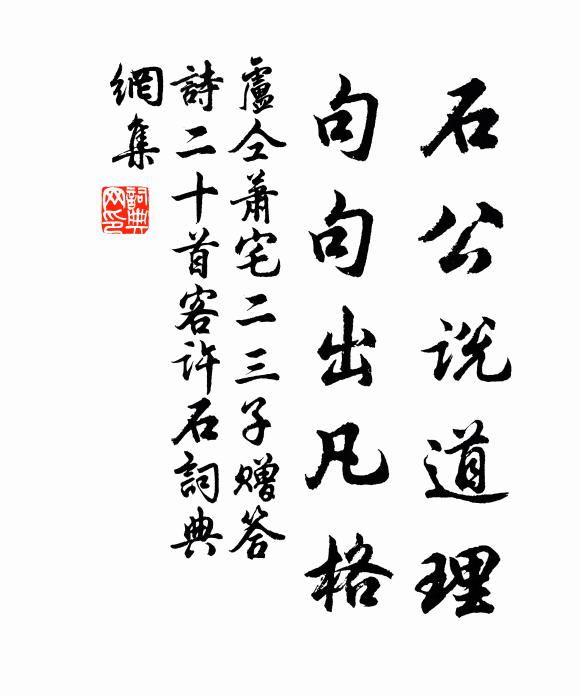 石公说道理
句句出凡格
盧仝萧宅二三子赠答
詩二十首客许石詞典
網集
詞典网印